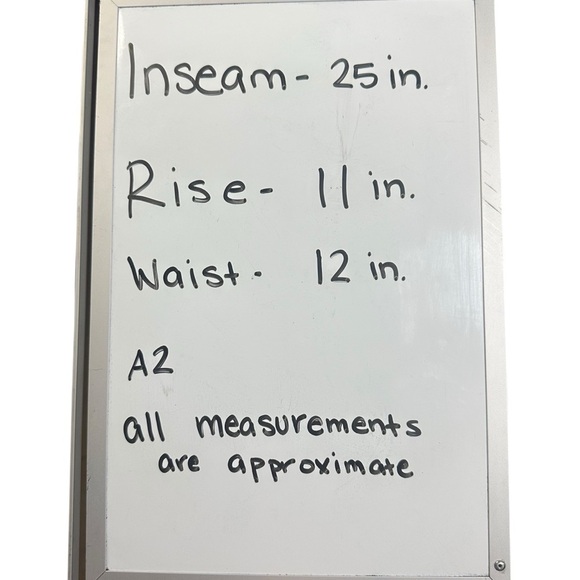 Inseam - 25 in.
Rise - 11 in.
Waist - 12 in.
A2
all measurements
are approximate